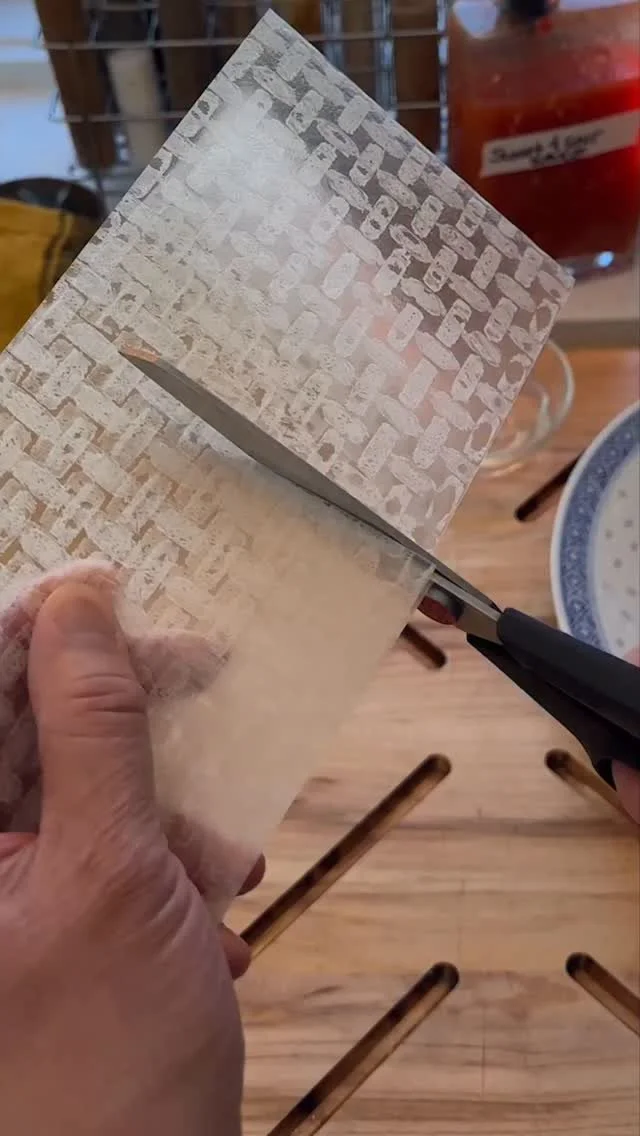 Sweet & Sour
SAUCE